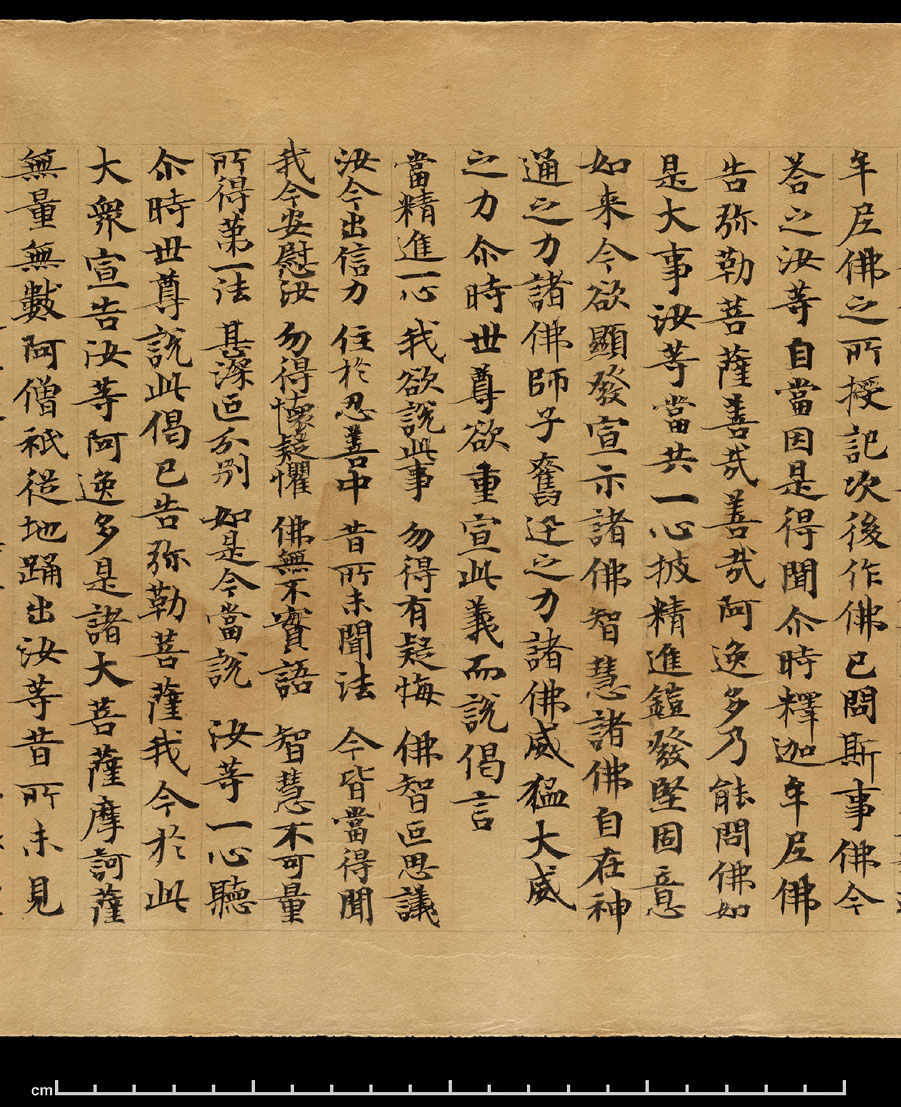 牟尼佛之所授記次後作佛已問斯事佛今
荅之汝等自當因是得聞尒時釋迦牟尼佛
告弥勒菩薩善哉善哉阿逸多乃能問佛如
是大事汝等當共一心披精進鎧發堅固意
如来今欲顯發宣示諸佛智慧諸佛自在神
通之力諸佛師子奮迅之力諸佛威猛大威
之力尒時世尊欲重宣此義而說偈言
當精進一心 我欲說此事 勿得有疑悔 佛智叵思議
汝今出信力 住於忍善中 昔所未聞法 今皆當得聞
我今安慰汝 勿得懷疑懼 佛無不實語 智慧不可量
所得第一法 甚深叵分別 如是今當說 汝等一心聽
尒時世尊說此偈已告弥勒菩薩我今於此
大衆宣告汝等阿逸多是諸大菩薩摩訶薩
無量無數阿僧祇從地踊出汝等昔所未見